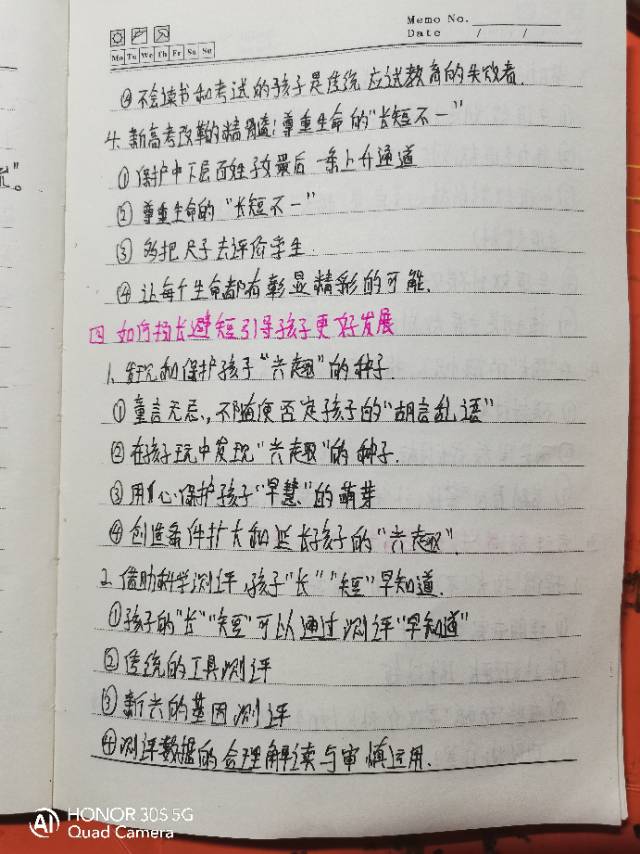 Memo No.
Date / /
Mo Tu We Th Fr Sa Su
④不会读书和考试的孩子是传统应试教育的失败者.
4.新高考改革的精髓:尊重生命的"长短不一"
①保护中下层百姓子女最后一条上升通道
②尊重生命的"长短不一"
③多把尺子去评价学生.
④让每个生命都有彰显精彩的可能.
四 如何扬长避短引导孩子更好发展
1.发现和保护孩子"兴趣"的种子.
①童言无忌,不随便否定孩子的"胡言乱语"
②在孩子玩中发现"兴趣"的种子.
③用心保护孩子"早慧"的萌芽
④创造条件扩大和延长孩子的"兴趣".
2.借助科学测评,孩子"长""短"早知道.
①孩子的"长""短"可以通过测评"早知道"
②传统的工具测评
③新兴的基因测评
④测评数据的合理解读与审慎运用.
"。
AI HONOR 30S 5G
Quad Camera